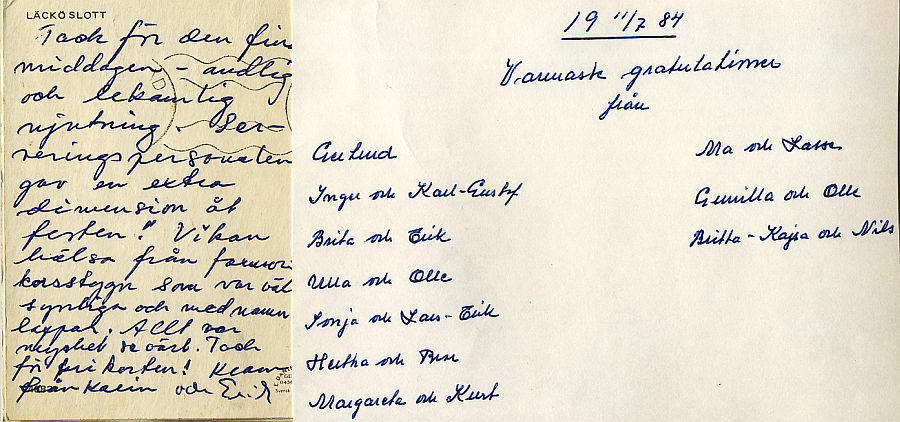 LÄCKÖ SLOTT
Tack för den fina
middagen - andlig
och lekamlig
njutning. Ser-
veringspersonalen
gav en extra
dimension åt
festen!" Vi kan
hälsa från
korsstygn som var väl
synliga och med namn
lappar. Allt var
mycket se värt. Tack
för frikosten! Kram
från Karin och Erik
19 11/7 84
Varmaste gratulationer
från
Gerlund
Inger och Karl-Gustof
Brita och Erik
Ulla och Olle
Sonja och Lars-Erik
Hertha och
Margareta och Kurt
Ma och Lasse
Gunilla och Olle
Britta-Kajsa och Nils